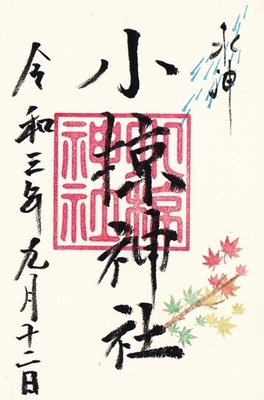 水神
小椋神社
令和三年九月十二日
小椋神社